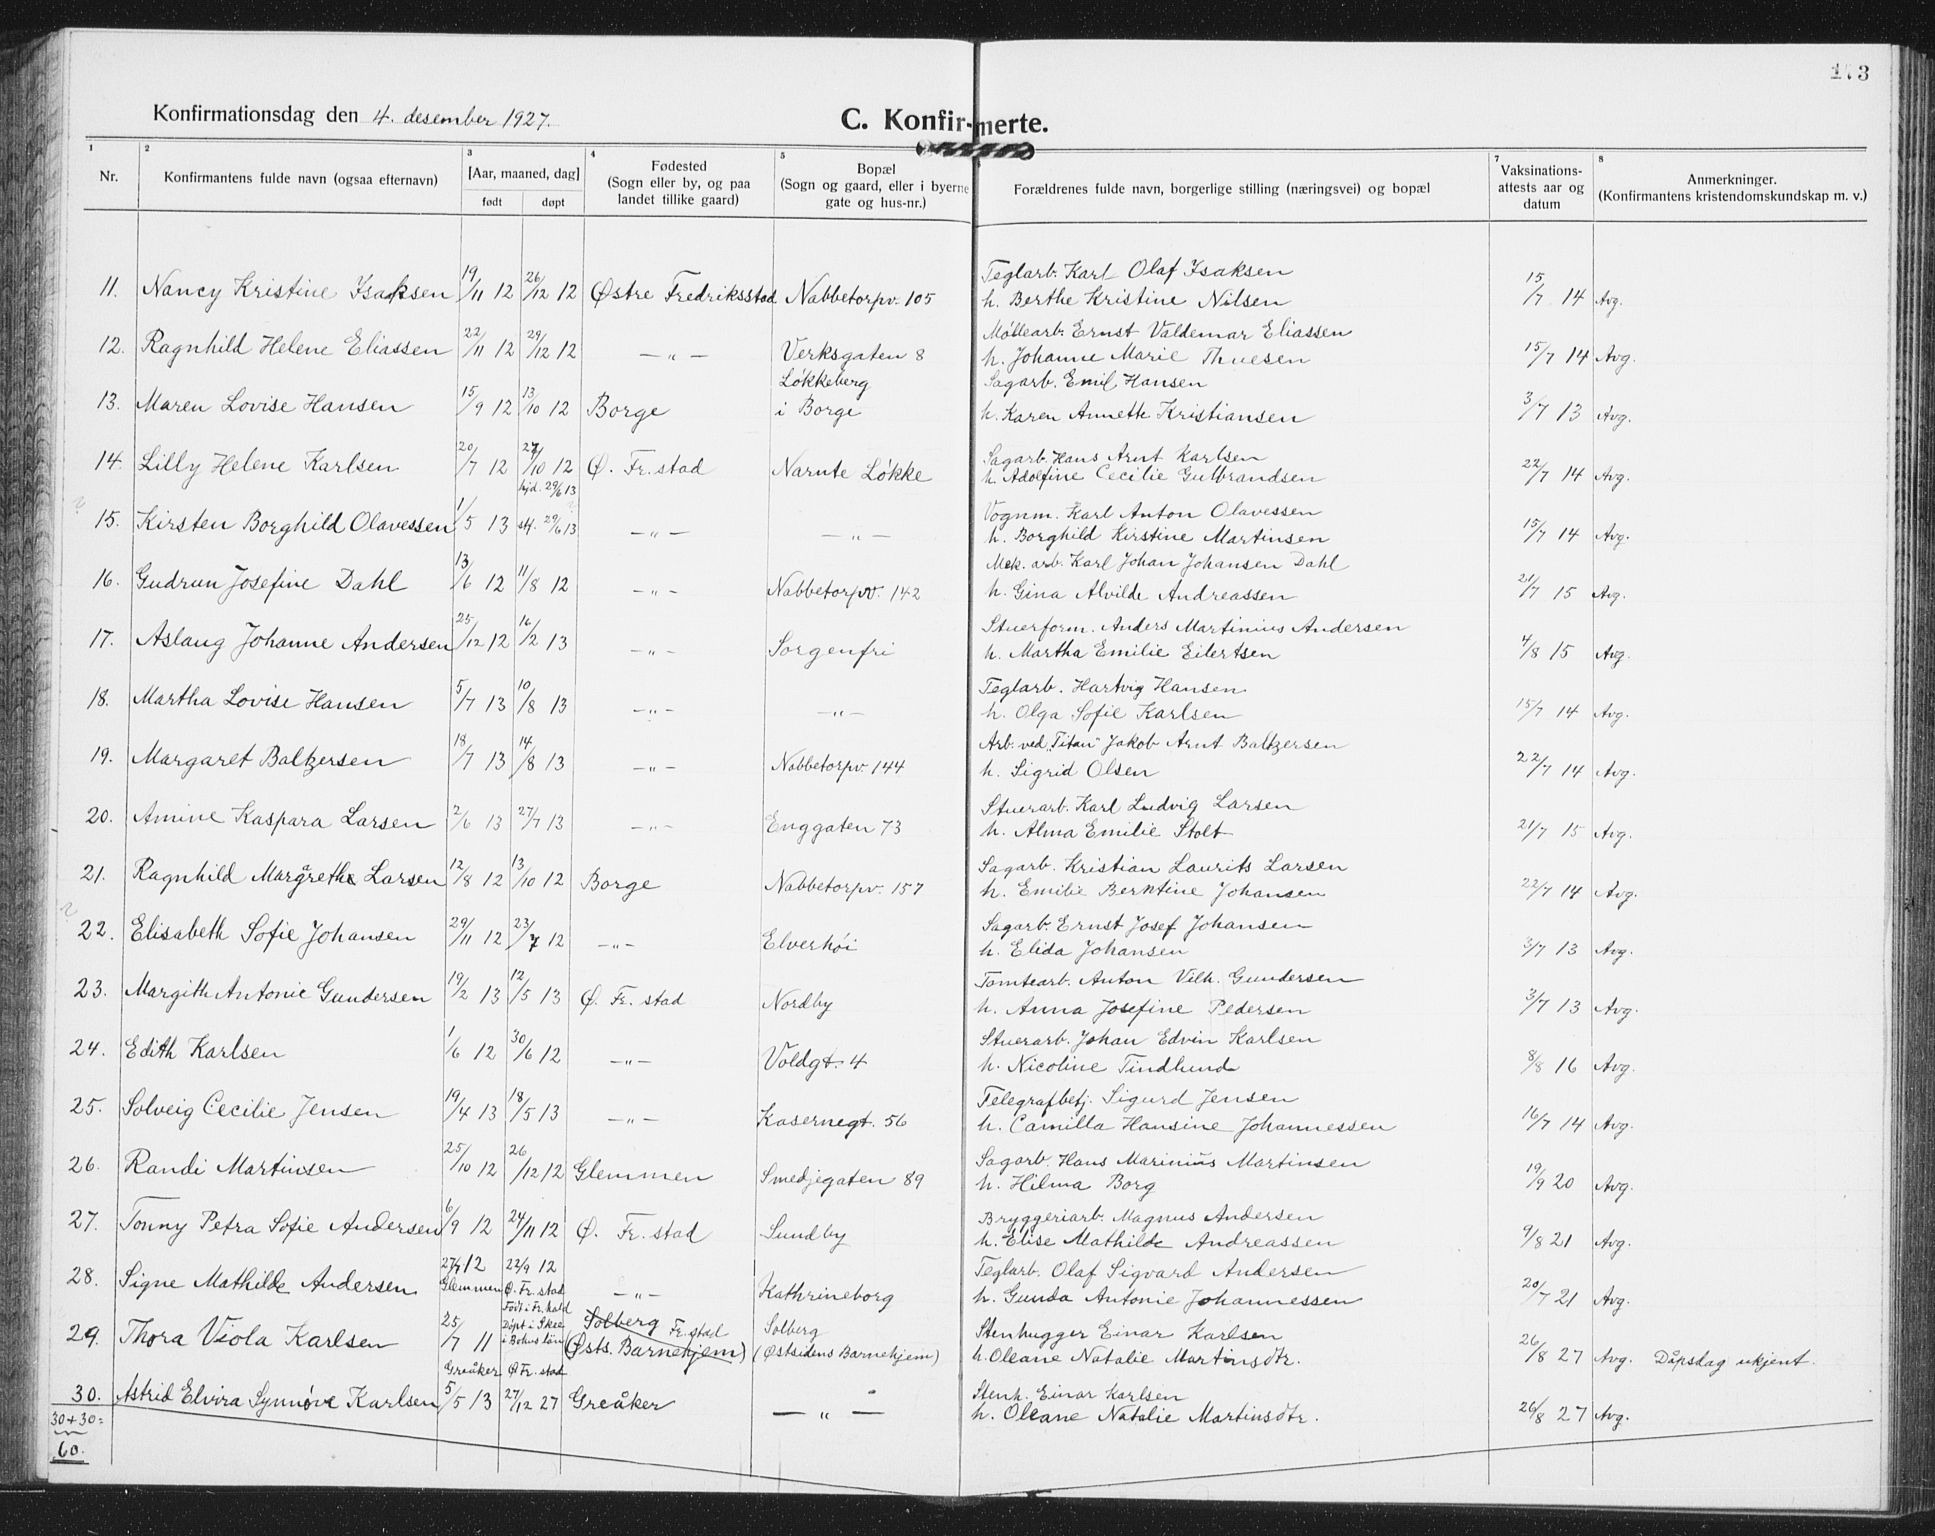 173
Konfirmationsdag den 4. desember 1927.
C. Konfirmerte.
1 2 3 4 5 6 7 8
Nr. Konfirmantens fulde navn (ogsaa efternavn) [Aar, maaned, dag] født døpt Fødested (Sogn eller by, og paa landet tillike gaard) Bopæl (Sogn og gaard, eller i byerne gate og hus-nr.) Forældrenes fulde navn, borgerlige stilling (næringsvei) og bopæl Vaksinations-attests aar og datum Anmerkninger. (Konfirmantens kristendomskundskap m. v.)
Teglarb. Karl Olaf Isaksen
11. Nancy Kristine Isaksen 19/11 12 26/12 12 Østre Fredriksstad Nabbetorpv. 105 h. Berthe Kristine Nilsen 15/7 14 Avg.
Møllearb. Ernst Valdemar Eliassen
12. Ragnhild Helene Eliassen 22/11 12 29/12 12 — „ — Verksgaten 8 h. Johanne Marie Thuesen 15/7 14 Avg.
Løkkeberg Sagarb. Emil Hansen
13. Maren Lovise Hansen 15/9 12 13/10 12 Borge i Borge h. Karen Annette Kristiansen 3/7 13 Avg.
Sagarb. Hans Arnt Karlsen
14. Lilly Helene Karlsen 20/7 12 27/10 12 Ø. Fr.stad Narnte Løkke h. Adolfine Cecilie Gulbrandsen 22/7 14 Avg.
hjd. 29/6 13
Vognm. Karl Anton Olavessen
15. Kirsten Borghild Olavessen 1/5 13 st. 29/6 13 — „ — — „ — h. Borghild Kirstine Martinsen 15/7 14 Avg.
Mek. arb. Karl Johan Johansen Dahl
16. Gudrun Josefine Dahl 13/6 12 11/8 12 — „ — Nabbetorpv. 142 h. Gina Alvilde Andreassen 21/7 15 Avg.
Stuerform. Anders Martinius Andersen
17. Aslaug Johanne Andersen 25/12 12 16/2 13 — „ — Sorgenfri h. Martha Emilie Eilertsen 4/8 15 Avg.
Teglarb. Hartvig Hansen
18. Martha Lovise Hansen 5/7 13 10/8 13 — „ — — „ — h. Olga Sofie Karlsen 15/7 14 Avg.
Arb. ved „Titan" Jakob Arnt Baltzersen
19. Margaret Baltzersen 18/7 13 14/8 13 — „ — Nabbetorpv. 144 h. Sigrid Olsen 22/7 14 Avg.
Stuerarb. Karl Ludvig Larsen
20. Amine Kaspara Larsen 2/6 13 27/7 13 — „ — Enggaten 73 h. Alma Emilie Stolt 21/7 15 Avg.
Sagarb. Kristian Laurits Larsen
21. Ragnhild Margrethe Larsen 12/8 12 13/10 12 Borge Nabbetorpv. 157 h. Emilie Berntine Johansen 22/7 14 Avg.
Sagarb. Ernst Josef Johansen
22. Elisabeth Sofie Johansen 29/11 12 23/7 12 — „ — Elverhöi h. Elida Johansen 3/7 13 Avg.
Tomtearb. Anton Vilh. Gundersen
23. Margith Antonie Gundersen 19/2 13 12/5 13 Ø. Fr. stad Nordby h. Anna Josefine Pedersen 3/7 13 Avg.
Stuerarb. Johan Edvin Karlsen
24. Edith Karlsen 1/6 12 30/6 12 — „ — Voldgt. 4 h. Nicoline Tindlund 8/8 16 Avg.
Telegrafbetj. Sigurd Jensen
25. Solveig Cecilie Jensen 19/4 13 18/5 13 — „ — Kasernegt. 56 h. Camilla Hansine Johannessen 16/7 14 Avg.
Sagarb. Hans Marinius Martinsen
26. Randi Martinsen 25/10 12 26/12 12 Glemmen Smedjegaten 89 h. Hilma Borg 19/9 20 Avg.
Bryggeriarb. Magnus Andersen
27. Tonny Petra Sofie Andersen 6/9 12 24/11 12 Ø. Fr. stad Sundby h. Elise Mathilde Andreassen 9/8 21 Avg.
27/7 12 22/9 12 Teglarb. Olaf Sigvard Andersen
28. Signe Mathilde Andersen Glemmen Ø. Fr. stad — „ — Kathrineborg h. Gunda Antonie Johannessen 20/7 21 Avg.
Født i Fr.hald Døpt i Skee i Bohuslän Solberg Fr.stad Solberg Stenhugger Einar Karlsen
29. Thora Viola Karlsen 25/7 11 (Østs. Barnehjem) (Østsidens Barnehjem) h. Oleane Natalie Martinsdtr. 26/8 27 Avg. Dåpsdag ukjent.
Greåker Ø Fr. stad Stenh. Einar Karlsen
30. Astrid Elvira Synnøve Karlsen 5/5 13 27/12 27 Greåker — „ — h. Oleane Natalie Martinsdtr. 26/8 27 Avg.
30+30=
60.